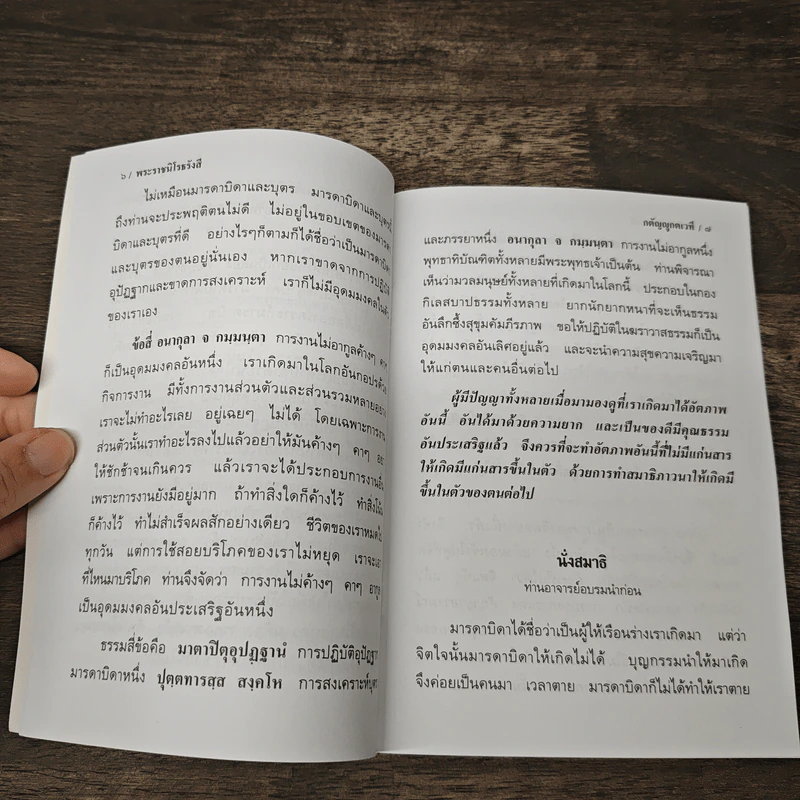 ๖ / พระราชนิโรธรังสี
ไม่เหมือนมารดาบิดาและบุตร มารดาบิดาและบุตร
ถึงท่านจะประพฤติตนไม่ดี ไม่อยู่ในขอบเขตของมารดา
บิดาและบุตรที่ดี อย่างไรๆก็ตามก็ได้ชื่อว่าเป็นมารดาบิดา
และบุตรของตนอยู่นั่นเอง หากเราขาดจากการปฏิบัติ
อุปัฏฐากและขาดการสงเคราะห์ เราก็ไม่มีอุดมมงคลในตัว
ของเราเอง
ข้อสี่ อนากุลา จ กมฺมนฺตา การงานไม่อากูลค้างๆ คาๆ
ก็เป็นอุดมมงคลอันหนึ่ง เราเกิดมาในโลกอันกอปรด้วย
กิจการงาน มีทั้งการงานส่วนตัวและส่วนรวมหลายอย่าง
เราจะไม่ทำอะไรเลย อยู่เฉยๆ ไม่ได้ โดยเฉพาะการงาน
ส่วนตัวนั้นเราทำอะไรลงไปแล้วอย่าให้มันค้างๆ คาๆ อย่า
ให้ชักช้าจนเกินควร แล้วเราจะได้ประกอบการงานอื่น
เพราะการงานยังมีอยู่มาก ถ้าทำสิ่งใดก็ค้างไว้ ทำสิ่งโน้น
ก็ค้างไว้ ทำไม่สำเร็จผลสักอย่างเดียว ชีวิตของเราหมดไป
ทุกวัน แต่การใช้สอยบริโภคของเราไม่หยุด เราจะเอา
ที่ไหนมาบริโภค ท่านจึงจัดว่า การงานไม่ค้างๆ คาๆ อากูล
เป็นอุดมมงคลอันประเสริฐอันหนึ่ง
ธรรมสี่ข้อคือ มาตาปิตุอุปฏฺฐานํ การปฏิบัติอุปัฏฐาก
มารดาบิดาหนึ่ง ปุตฺตทารสฺส สงฺคโห การสงเคราะห์บุตร
กตัญญูกตเวที / ๗
และภรรยาหนึ่ง อนากุลา จ กมฺมนฺตา การงานไม่อากูลหนึ่ง
พุทธาทิบัณฑิตทั้งหลายมีพระพุทธเจ้าเป็นต้น ท่านพิจารณา
เห็นว่ามวลมนุษย์ทั้งหลายที่เกิดมาในโลกนี้ ประกอบในกอง
กิเลสบาปธรรมทั้งหลาย ยากนักยากหนาที่จะเห็นธรรม
อันลึกซึ้งสุขุมคัมภีรภาพ ขอให้ปฏิบัติในฆราวาสธรรมก็เป็น
อุดมมงคลอันเลิศอยู่แล้ว และจะนำความสุขความเจริญมา
ให้แก่ตนและคนอื่นต่อไป
ผู้มีปัญญาทั้งหลายเมื่อมามองดูที่เราเกิดมาได้อัตภาพ
อันนี้ อันได้มาด้วยความยาก และเป็นของดีมีคุณธรรม
อันประเสริฐแล้ว จึงควรที่จะทำอัตภาพอันนี้ที่ไม่มีแก่นสาร
ให้เกิดมีแก่นสารขึ้นในตัว ด้วยการทำสมาธิภาวนาให้เกิดมี
ขึ้นในตัวของตนต่อไป
นั่งสมาธิ
ท่านอาจารย์อบรมนำก่อน
มารดาบิดาได้ชื่อว่าเป็นผู้ให้เรือนร่างเราเกิดมา แต่ว่า
จิตใจนั้นมารดาบิดาให้เกิดไม่ได้ บุญกรรมนำให้มาเกิด
จึงค่อยเป็นคนมา เวลาตาย มารดาบิดาก็ไม่ได้ทำให้เราตาย